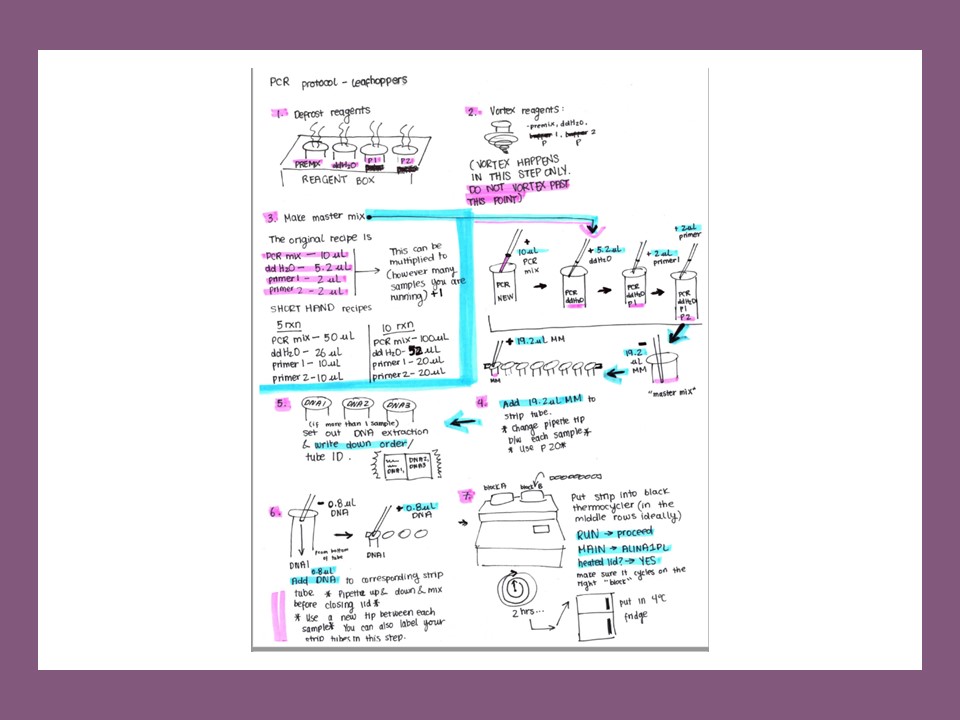 PCR protocol - Leafhoppers
1. Defrost reagents
PREMIX ddH2O P1 P2
REAGENT BOX
2. Vortex reagents:
-premix, ddH2O,
1, 2
P P
(VORTEX HAPPENS
IN THIS STEP ONLY.
DO NOT VORTEX PAST
THIS POINT)
3. Make master mix
The original recipe is
PCR mix — 10 uL
ddH2O — 5.2 uL
primer 1 — 2 uL
primer 2 — 2 uL
This can be
multiplied to
(however many
samples you are
running) +1
SHORT HAND recipes
5 rxn
PCR mix — 50 uL
ddH2O — 26 uL
primer 1 — 10 uL
primer 2 - 10 uL
10 rxn
PCR mix — 100uL
ddH2O - 52 uL
primer 1 - 20 uL
primer 2 - 20uL
+ 10uL PCR mix
+ 5.2uL ddH2O
+ 2uL primer 1
+ 2uL primer
PCR NEW
PCR ddH2O
PCR ddH2O P1
PCR ddH2O P1 P2
+ 19.2uL MM
MM
- 19.2 uL MM
"master mix"
4. Add 19.2uL MM to
strip tube.
* Change pipette tip
b/w each sample *
* Use P20*
5. DNA1 DNA2 DNA3
(if more than 1 sample)
set out DNA extraction
& write down order/
tube ID.
DNA1,
DNA2,
DNA3
6. - 0.8uL DNA
+ 0.8uL DNA
from bottom of tube
DNA1
DNA1
0.8uL
Add DNA to corresponding strip
tube * Pipette up & down & mix
before closing lid *
* Use a new tip between each
sample* You can also label your
strip tubes in this step.
7. block A block B
Put strip into black
thermocycler (in the
middle rows ideally)
RUN → proceed
MAIN → ALINA1PL
heated lid? → YES
make sure it cycles on the
right "block"
2 hrs...
put in 4°C
fridge